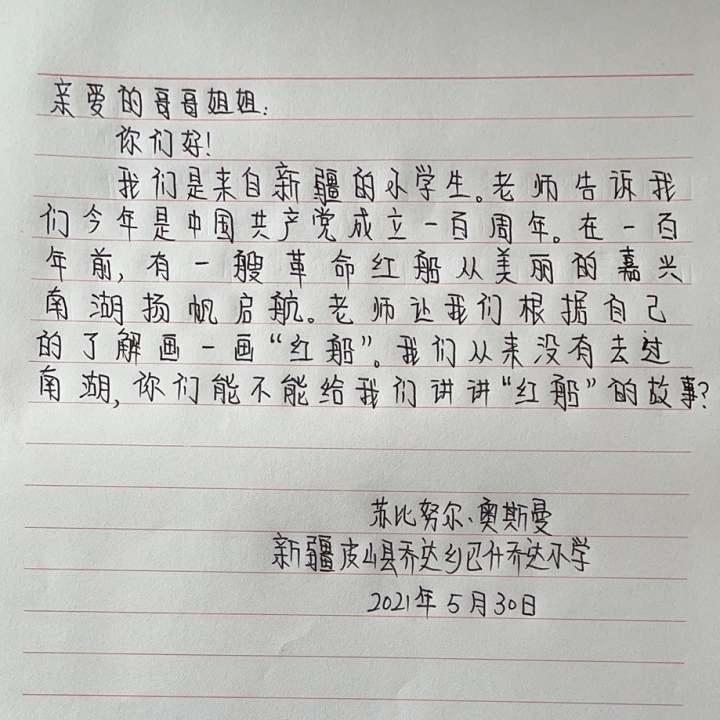 亲爱的哥哥姐姐:
你们好!
我们是来自新疆的小学生。老师告诉我
们今年是中国共产党成立一百周年。在一百
年前,有一艘革命红船从美丽的嘉兴
南湖扬帆启航。老师让我们根据自己
的了解画一画“红船”。我们从来没有去过
南湖,你们能不能给我们讲讲“红船”的故事?
苏比努尔·奥斯曼
新疆皮山县乔达乡巴什乔达小学
2021年5月30日